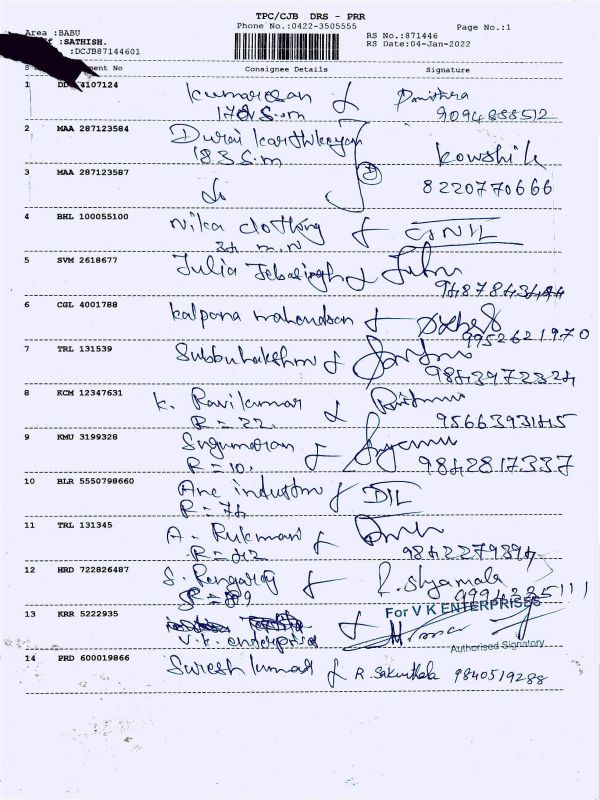 TPC/CJB DRS - PRR
Phone No.:0422-3505555 Page No.:1
Area :BABU RS No.:871446
:SATHISH. RS Date:04-Jan-2022
:DCJB87144601
S ment No Consignee Details Signature
1 DD 4107124 Kumaresan
9094888512
2 MAA 287123584 Durai Karthikeyan
183 S.m Kowshik
3 MAA 287123587 8220770666
4 BHL 100055100 Nika Clothing
5 SVM 2618677 Julia Jebasingh
6 CGL 4001788 Kalpana Mahendran
9952621970
7 TRL 131539 Subbulakshmi
9843972324
8 KCM 12347631 K. Ravikumar
R = 22. 9566393145
9 KMU 3199328 Sugumaran
R = 10. 9842817337
10 BLR 5550798660 Arc industry
R = 74
11 TRL 131345 A. Rukmani
R = 42 9842279894
12 HRD 722826487 S. Rengaraj R. Shyamala
9994225111
For V K ENTERPRISES
13 KRR 5222935
V.K. enterprise
Authorised Signatory
14 PRD 600019866 Suresh Kumar R. Sakunthala 9840519288